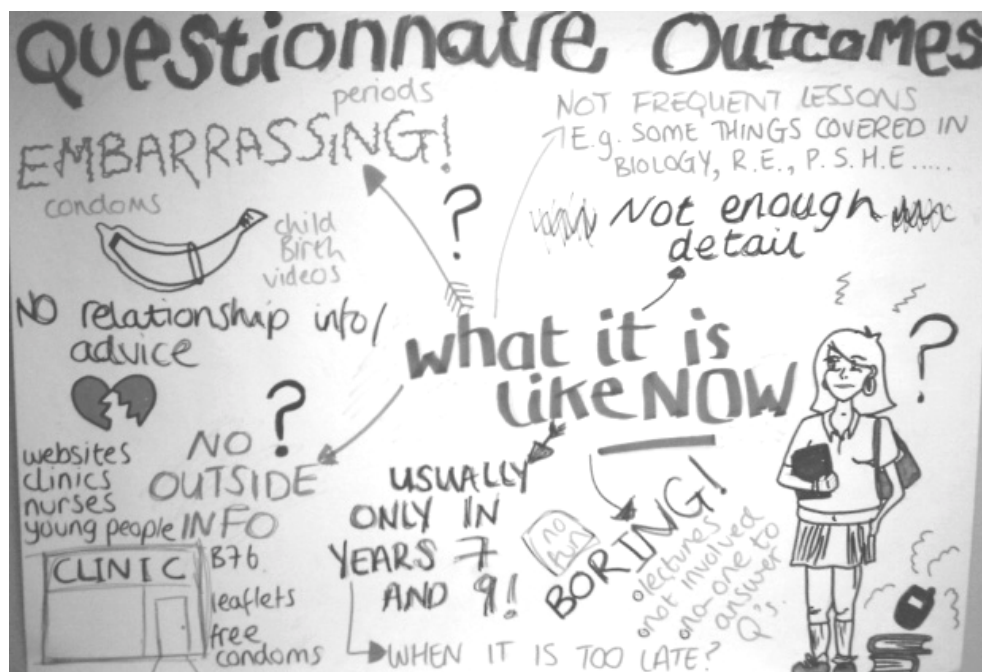 Questionnaire Outcomes
periods
EMBARRASSING!
condoms
child
Birth
videos
NOT FREQUENT LESSONS
E.g. SOME THINGS COVERED IN
BIOLOGY, R.E., P.S.H.E.....
Not enough
detail
NO relationship info/
advice
what it is
like NOW
websites
clinics
nurses
young people
NO
OUTSIDE
INFO
CLINIC
B76
leaflets
free
condoms
USUALLY
ONLY IN
YEARS 7
AND 9!
WHEN IT IS TOO LATE?
no
fun
BORING!
lectures
not involved
no-one to
answer
Q's.
?
?
?